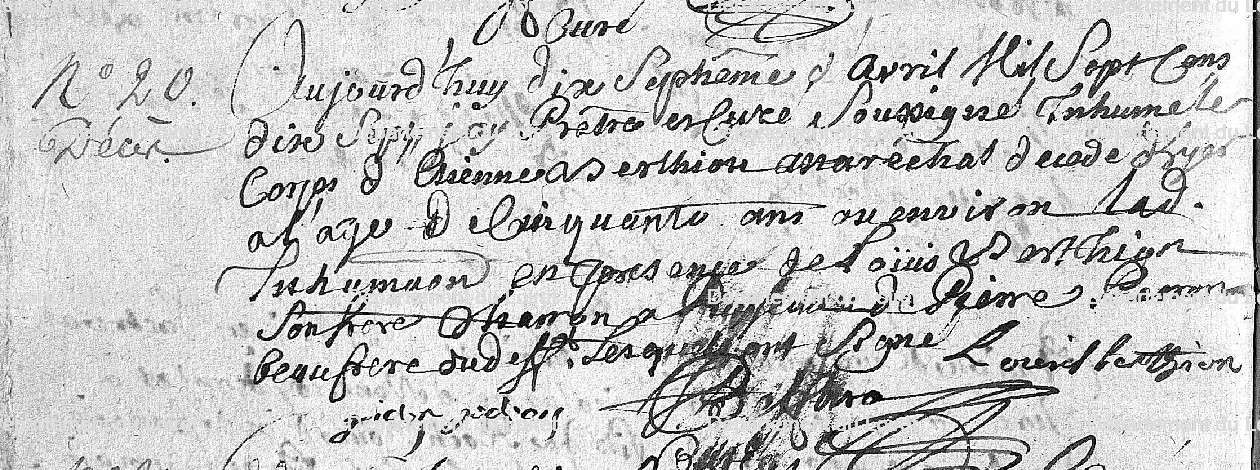 Curé
N° 20. Aujourd'huy dix Sephtême d' avril Mil Sept Cens
Décès. dix Sept, jay Prêtre et Curé Soussigné Inhumé le
Corps d' Etienne Berthion maréchal décédé d'hyer
a l'age de Cinquante ans ou environ lad.
Inhumaon en presence de Loüis Berthion
Son frere Charron a de Pierre
beaufrere dud. deff. Lesquels ont Signé Louis berthion